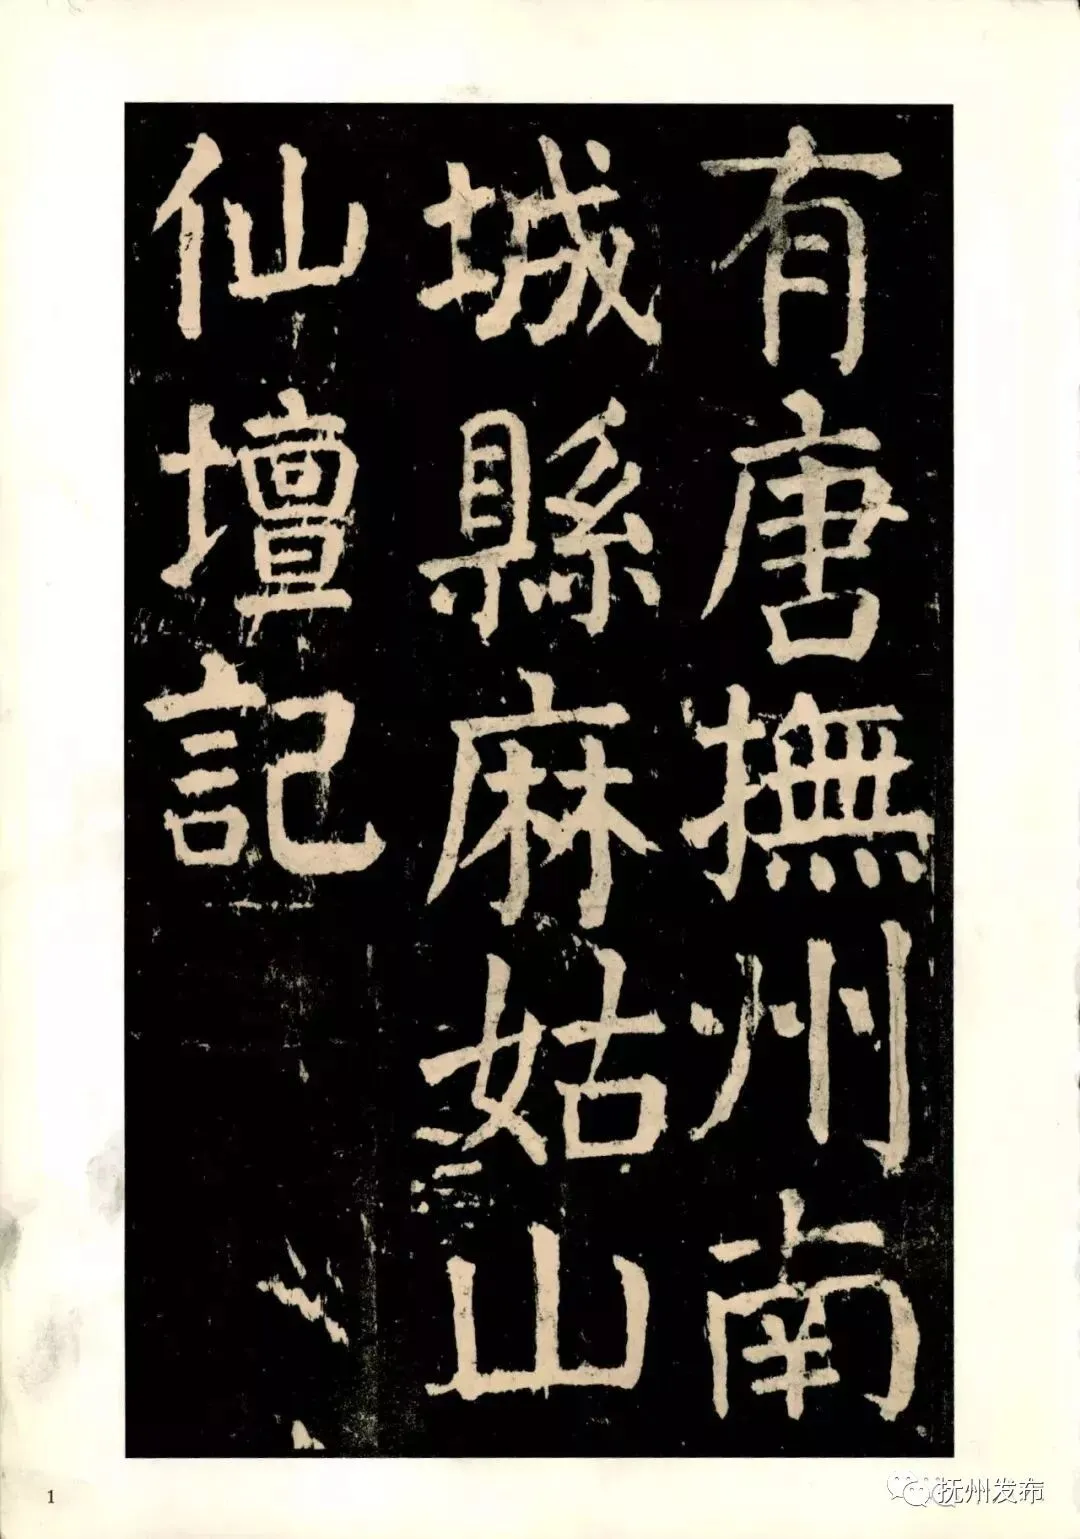 有唐撫州南
城縣麻姑山
仙壇記
1
抚州发布